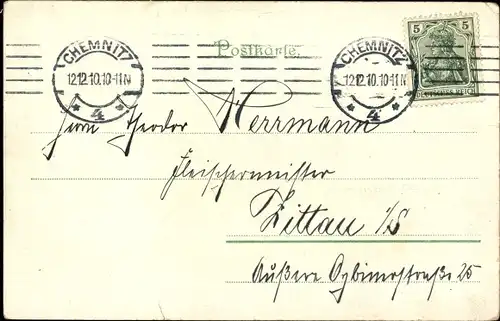 Postkarte.
CHEMNITZ
12.12.10.10-11N
* 4 *
CHEMNITZ
12.12.10.10-11N
* 4 *
5 5
DEUTSCHES REICH
Herrn Theodor Herrmann
Fleischermeister
Zittau i/S
Äußere Oybinerstraße 25